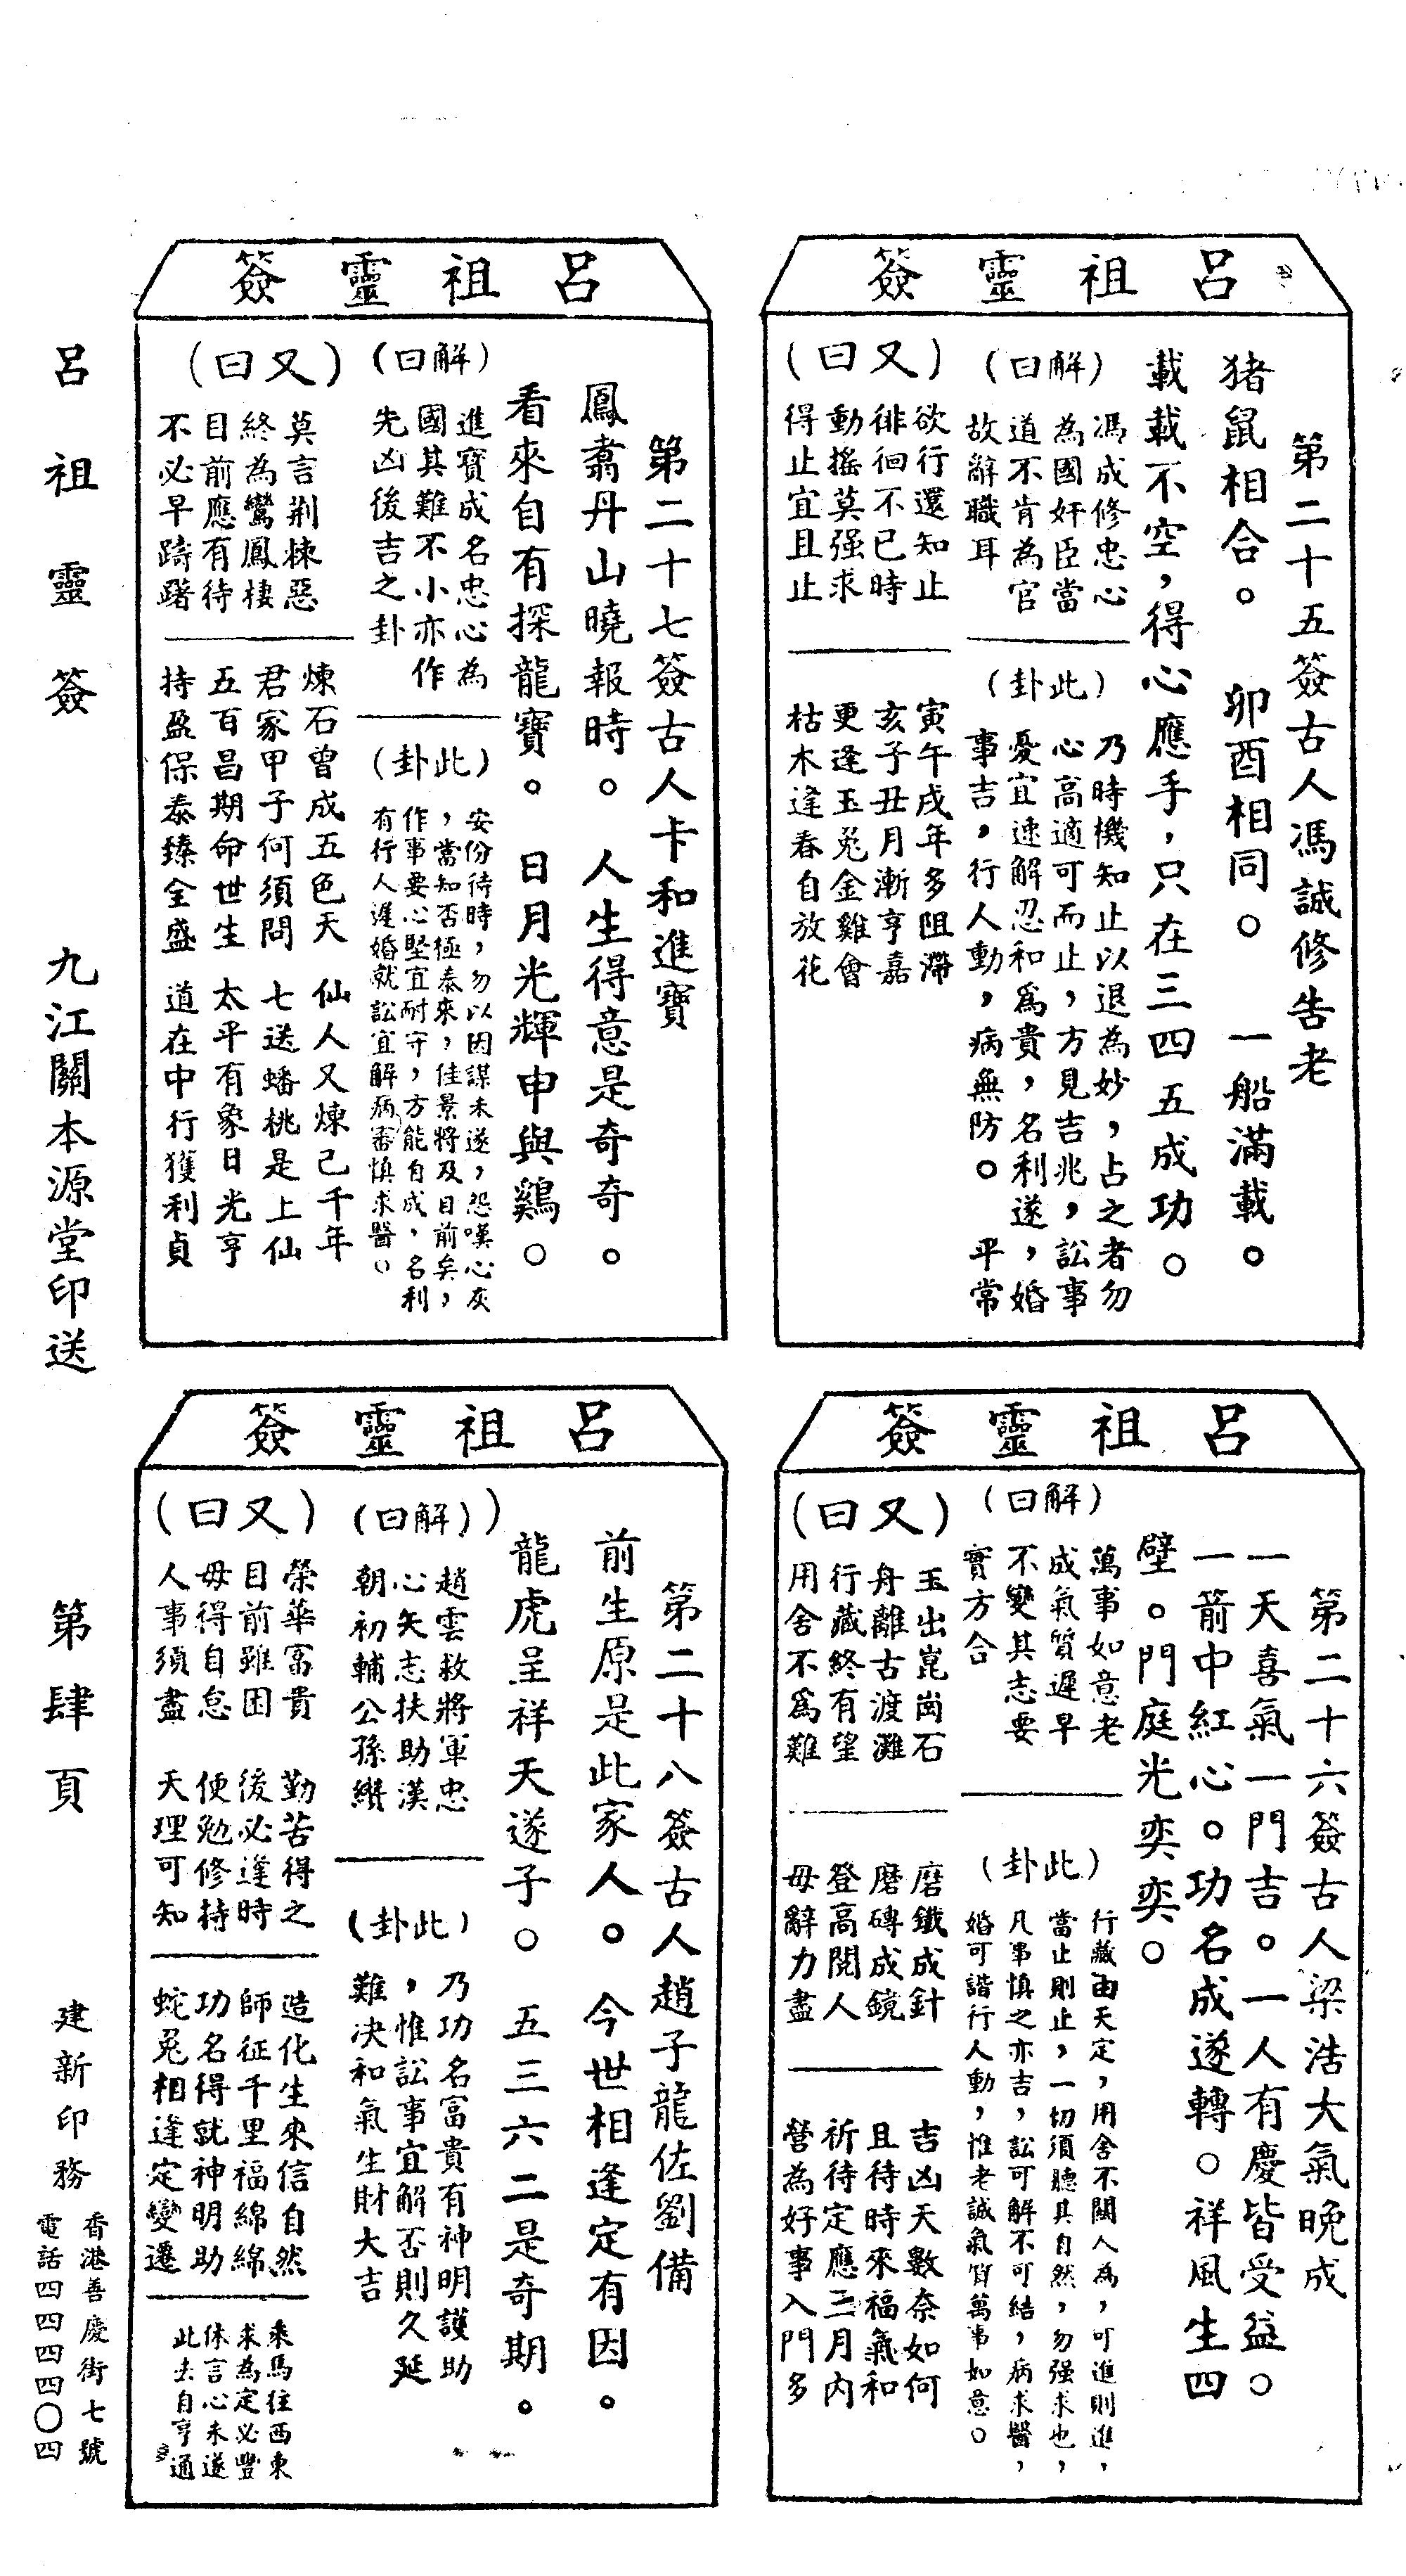 呂祖靈簽
第二十五簽古人馮誠修告老
猪鼠相合。卯酉相同。一船滿載。
載載不空，得心應手，只在三四五成功。
（解曰）
馮成修忠心
為國奸臣當
道不肯為官
故辭職耳
（此卦）
乃時機知止以退為妙，占之者勿
心高適可而止，方見吉兆，訟事
憂宜速解忍和爲貴，名利遂，婚
事吉，行人動，病無防。平常
（又曰）
欲行還知止
徘徊不已時
動搖莫强求
得止宜且止
寅午戌年多阻滯
亥子丑月漸亨嘉
更逢玉兎金雞會
枯木逢春自放花
呂祖靈簽
第二十六簽古人梁浩大氣晚成
一天喜氣一門吉。一人有慶皆受益。
一箭中紅心。功名成遂轉。祥風生四
壁。門庭光奕奕。
（解曰）
萬事如意老
成氣質遲早
不變其志要
實方合
（此卦）
行藏由天定，用舍不關人為，可進則進，
當止則止，一切須聽其自然，勿强求也，
凡事慎之亦吉，訟可解不可結，病求醫，
婚可諧行人動，惟老誠氣質萬事如意。
（又曰）
玉出崑崗石
舟離古渡灘
行藏終有望
用舍不爲難
磨鐵成針
磨磚成鏡
登高閱人
毋辭力盡
吉凶天數奈如何
且待時來福氣和
祈待定應三月內
營為好事入門多
呂祖靈簽
第二十七簽古人卞和進寶
鳳翥丹山曉報時。人生得意是奇奇。
看來自有探龍寶。日月光輝申與鷄。
（解曰）
進寶成名忠心為
國其難不小亦作
先凶後吉之卦
（此卦）
安份待時，勿以因謀未遂，怨嘆心灰
，當知否極泰來，佳景將及目前矣，
作事要心堅宜耐守，方能自成，名利
有行人遲婚就訟宜解病審慎求醫。
（又曰）
莫言荆棘惡
終為鸞鳳棲
目前應有待
不必早躊躇
煉石曾成五色天 仙人又煉已千年
君家甲子何須問 七送蟠桃是上仙
五百昌期命世生 太平有象日光亨
持盈保泰臻全盛 道在中行獲利貞
呂祖靈簽
第二十八簽古人趙子龍佐劉備
前生原是此家人。今世相逢定有因。
龍虎呈祥天遂子。五三六二是奇期。
（解曰））
趙雲救將軍忠
心矢志扶助漢
朝初輔公孫纘
（此卦）
乃功名富貴有神明護助
，惟訟事宜解否則久延
難决和氣生財大吉
（又曰）
榮華富貴 勤苦得之
目前雖困 後必逢時
毋得自怠 便勉修持
人事須盡 天理可知
造化生來信自然
師征千里福綿綿
功名得就神明助
蛇兎相逢定變遷
乘馬往西東
求為定必豐
休言心未遂
此去自亨通
呂祖靈簽
九江關本源堂印送
第肆頁
建新印務
香港善慶街七號
電話四四四四〇四